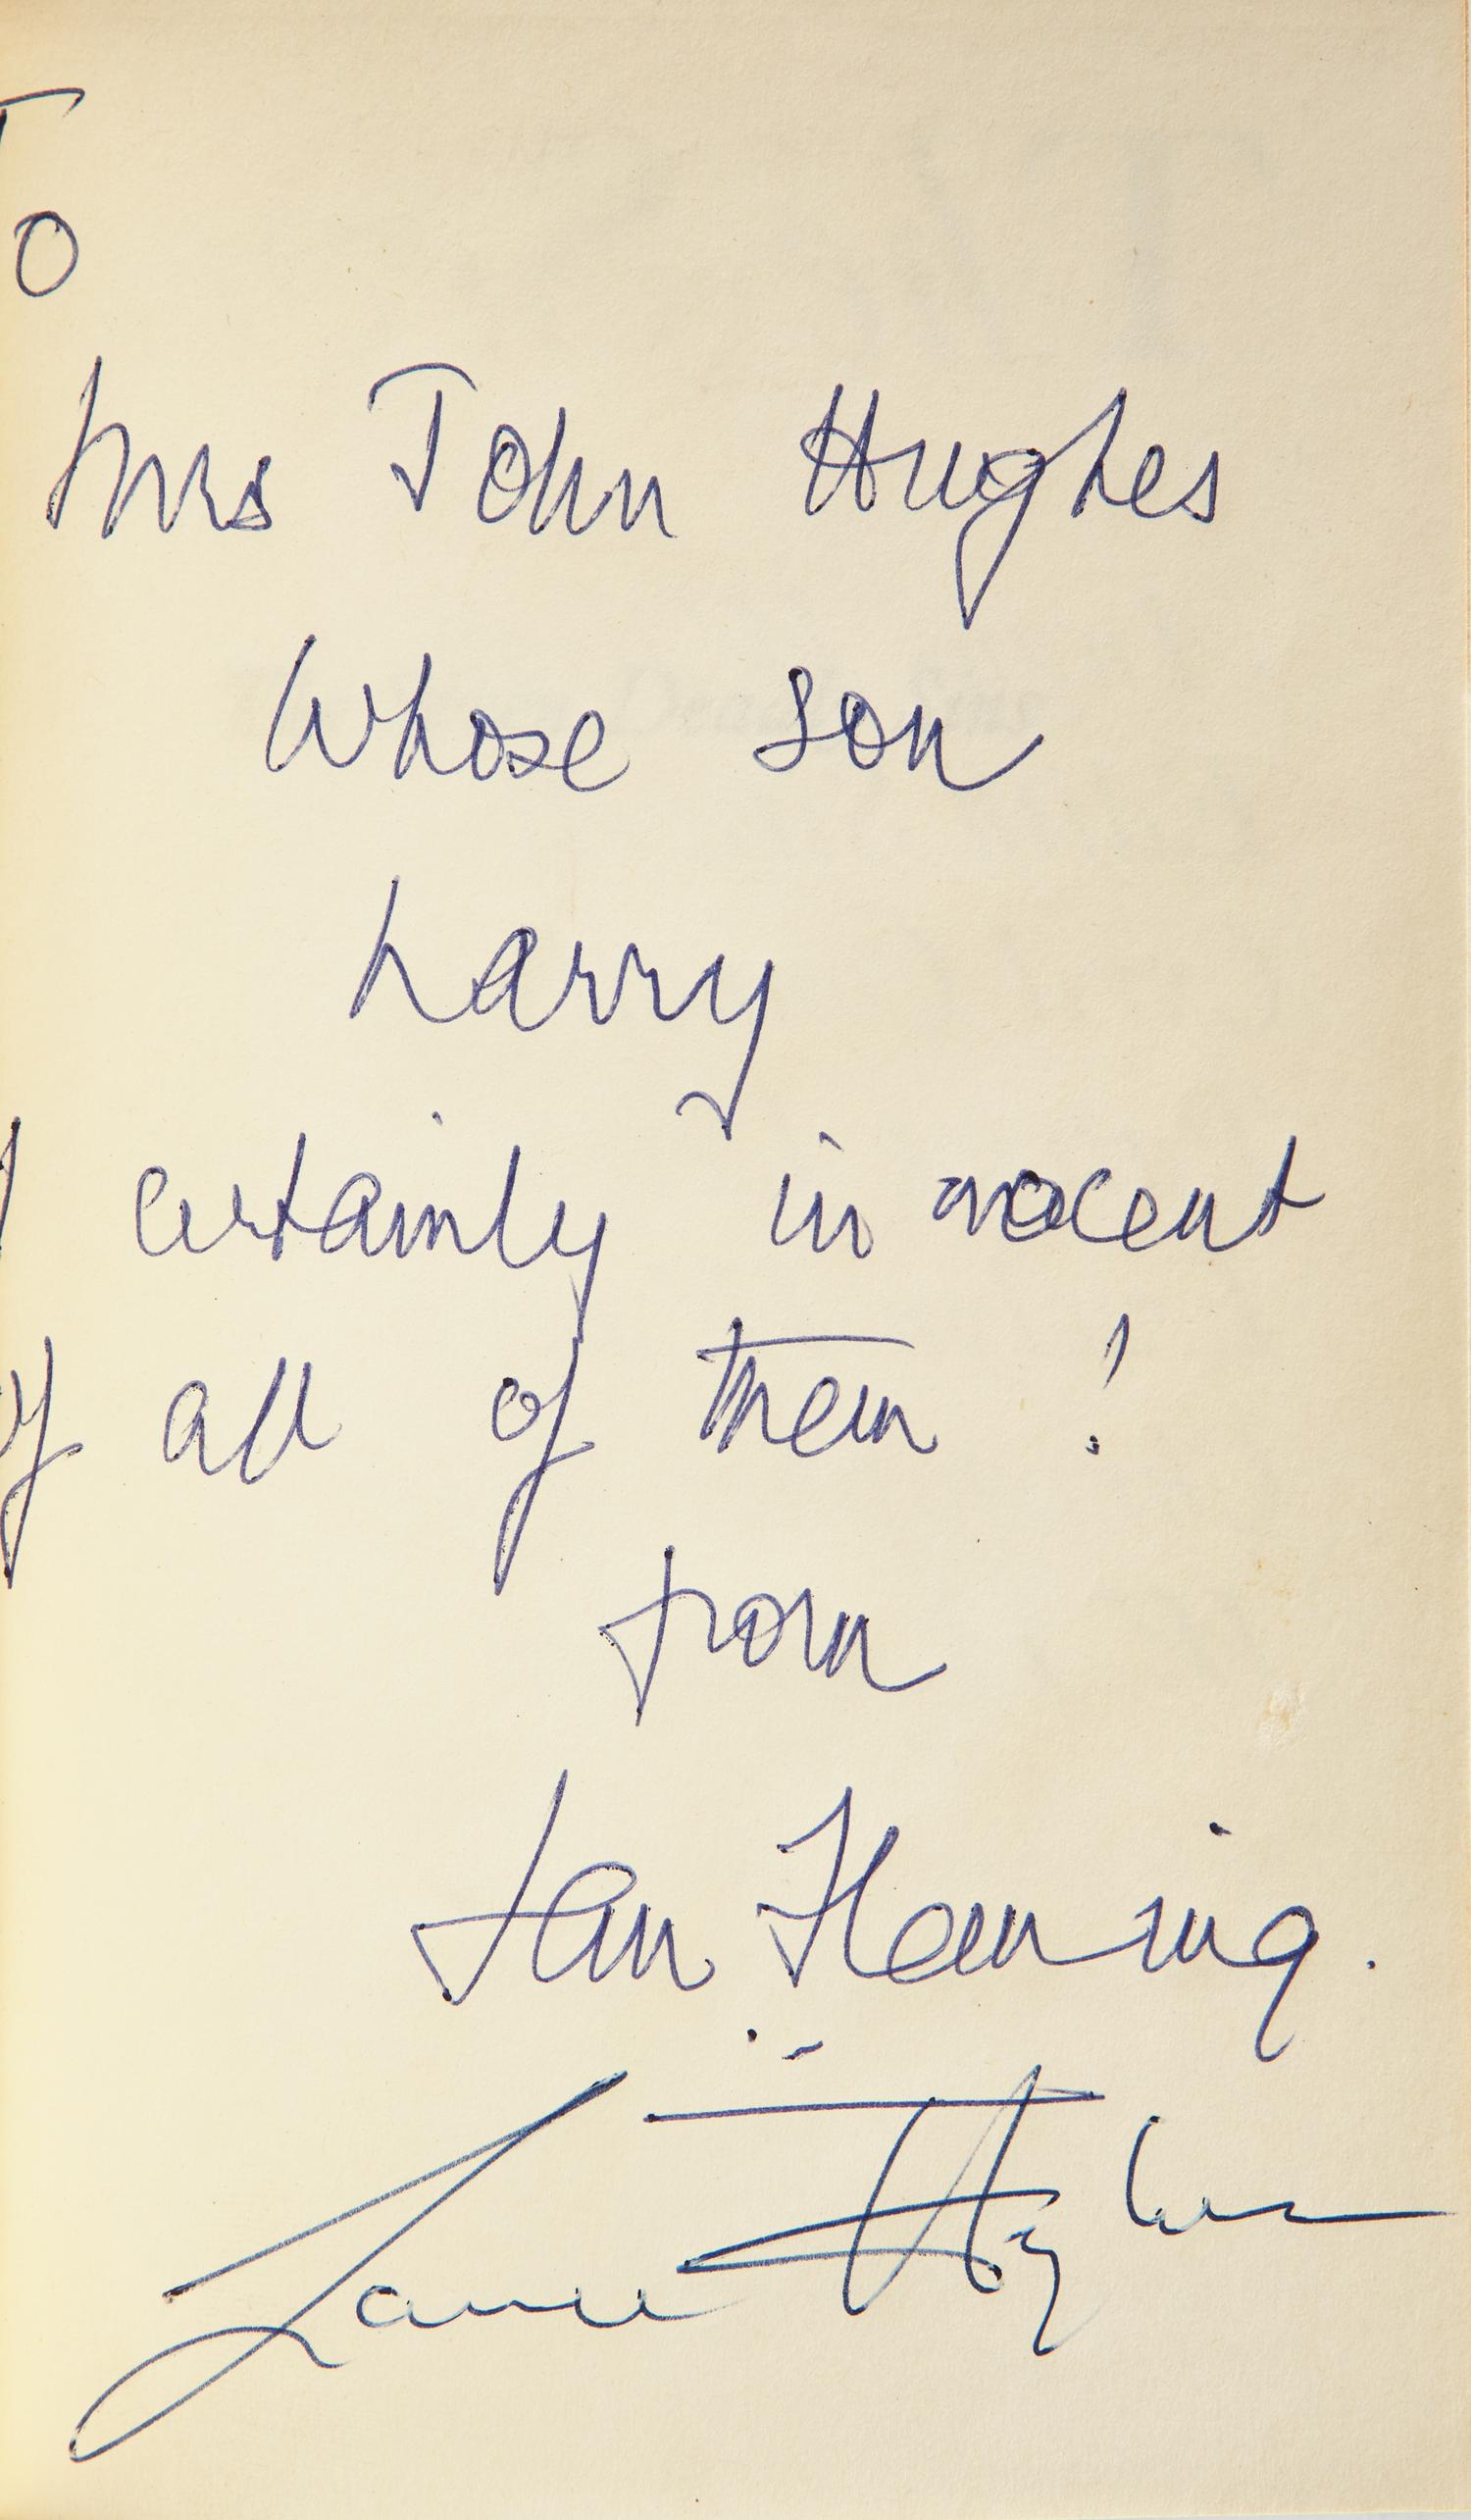 To
Mrs John Hughes
Whose son
Larry
certainly innocent
of all of them!
from
Ian Fleming.